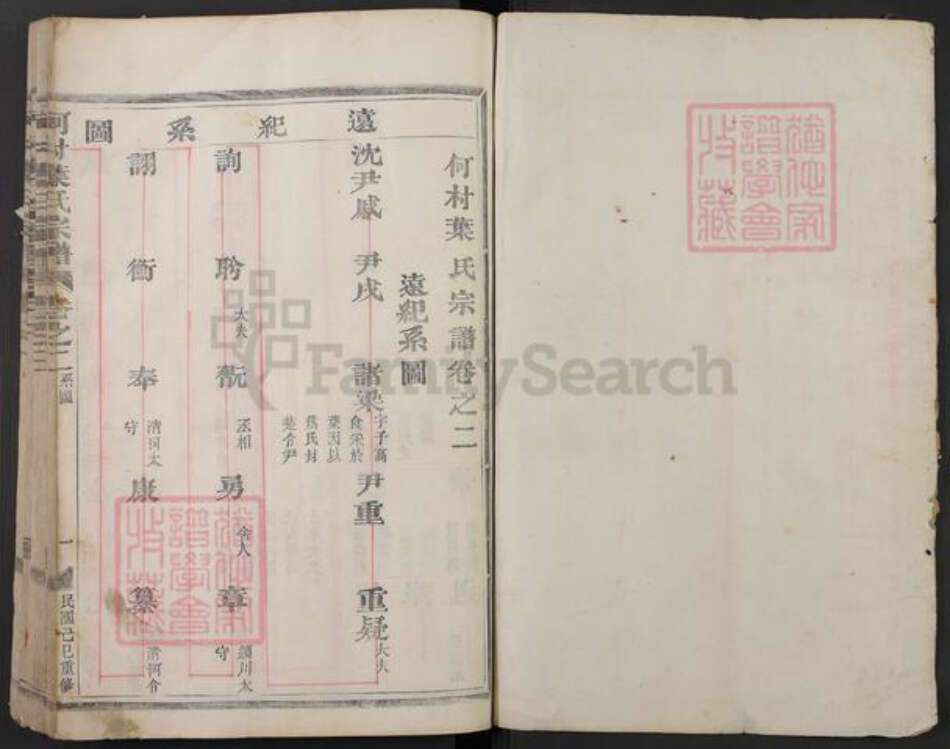 何村葉氏宗譜卷之二
遠紀系圖
遠紀系圖
沈尹戚 尹戌 諸梁 字子高
食采於
葉因以
爲氏封
楚令尹
尹重 重疑 大夫
詢 聆 大夫 翫 丞相 勇 舍人 章 潁川太
守
詡 衡 奉 清河太
守 康 纂 清河令
何村葉氏宗譜 卷之二 系圖 一 民國己巳重修
猶他家
譜學會
收藏
猶他家
譜學會
收藏
FamilySearch